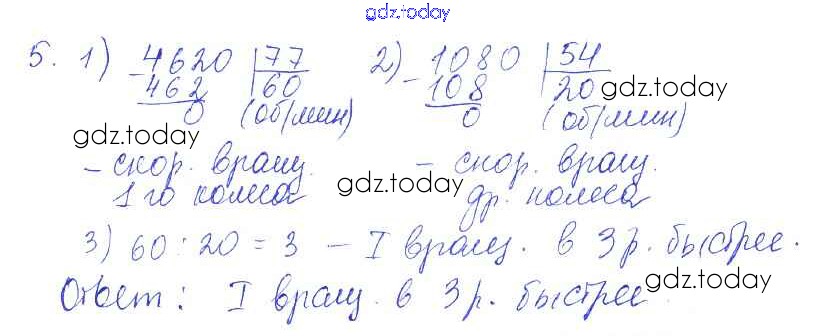 gdz.today
5. 1) 4620 | 77 2) 1080 | 54
- 462 60 - 108 20 gdz.today
0 (об/мин) 0 (об/мин)
gdz.today
- скор. вращ. - скор. вращ.
gdz.today
1го колеса др. колеса
3) 60 : 20 = 3 - I вращ. в 3 р. быстрее.
gdz.today
Ответ: I вращ. в 3 р. быстрее.